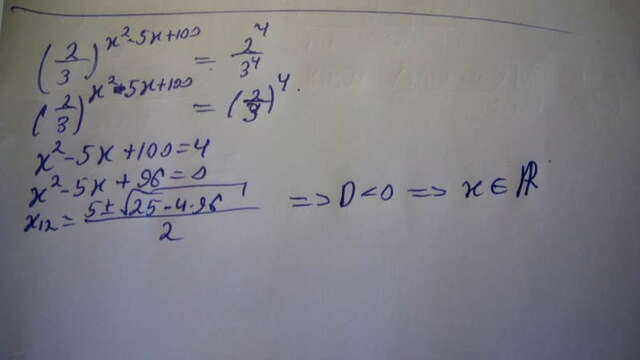 (2/3)^(x²-5x+100) = 2⁴/3⁴
(2/3)^(x²-5x+100) = (2/3)⁴.
x²-5x+100=4
x²-5x+96=0
x₁₂= (5±√(25-4·96))/2 => D<0 => x∈ℝ